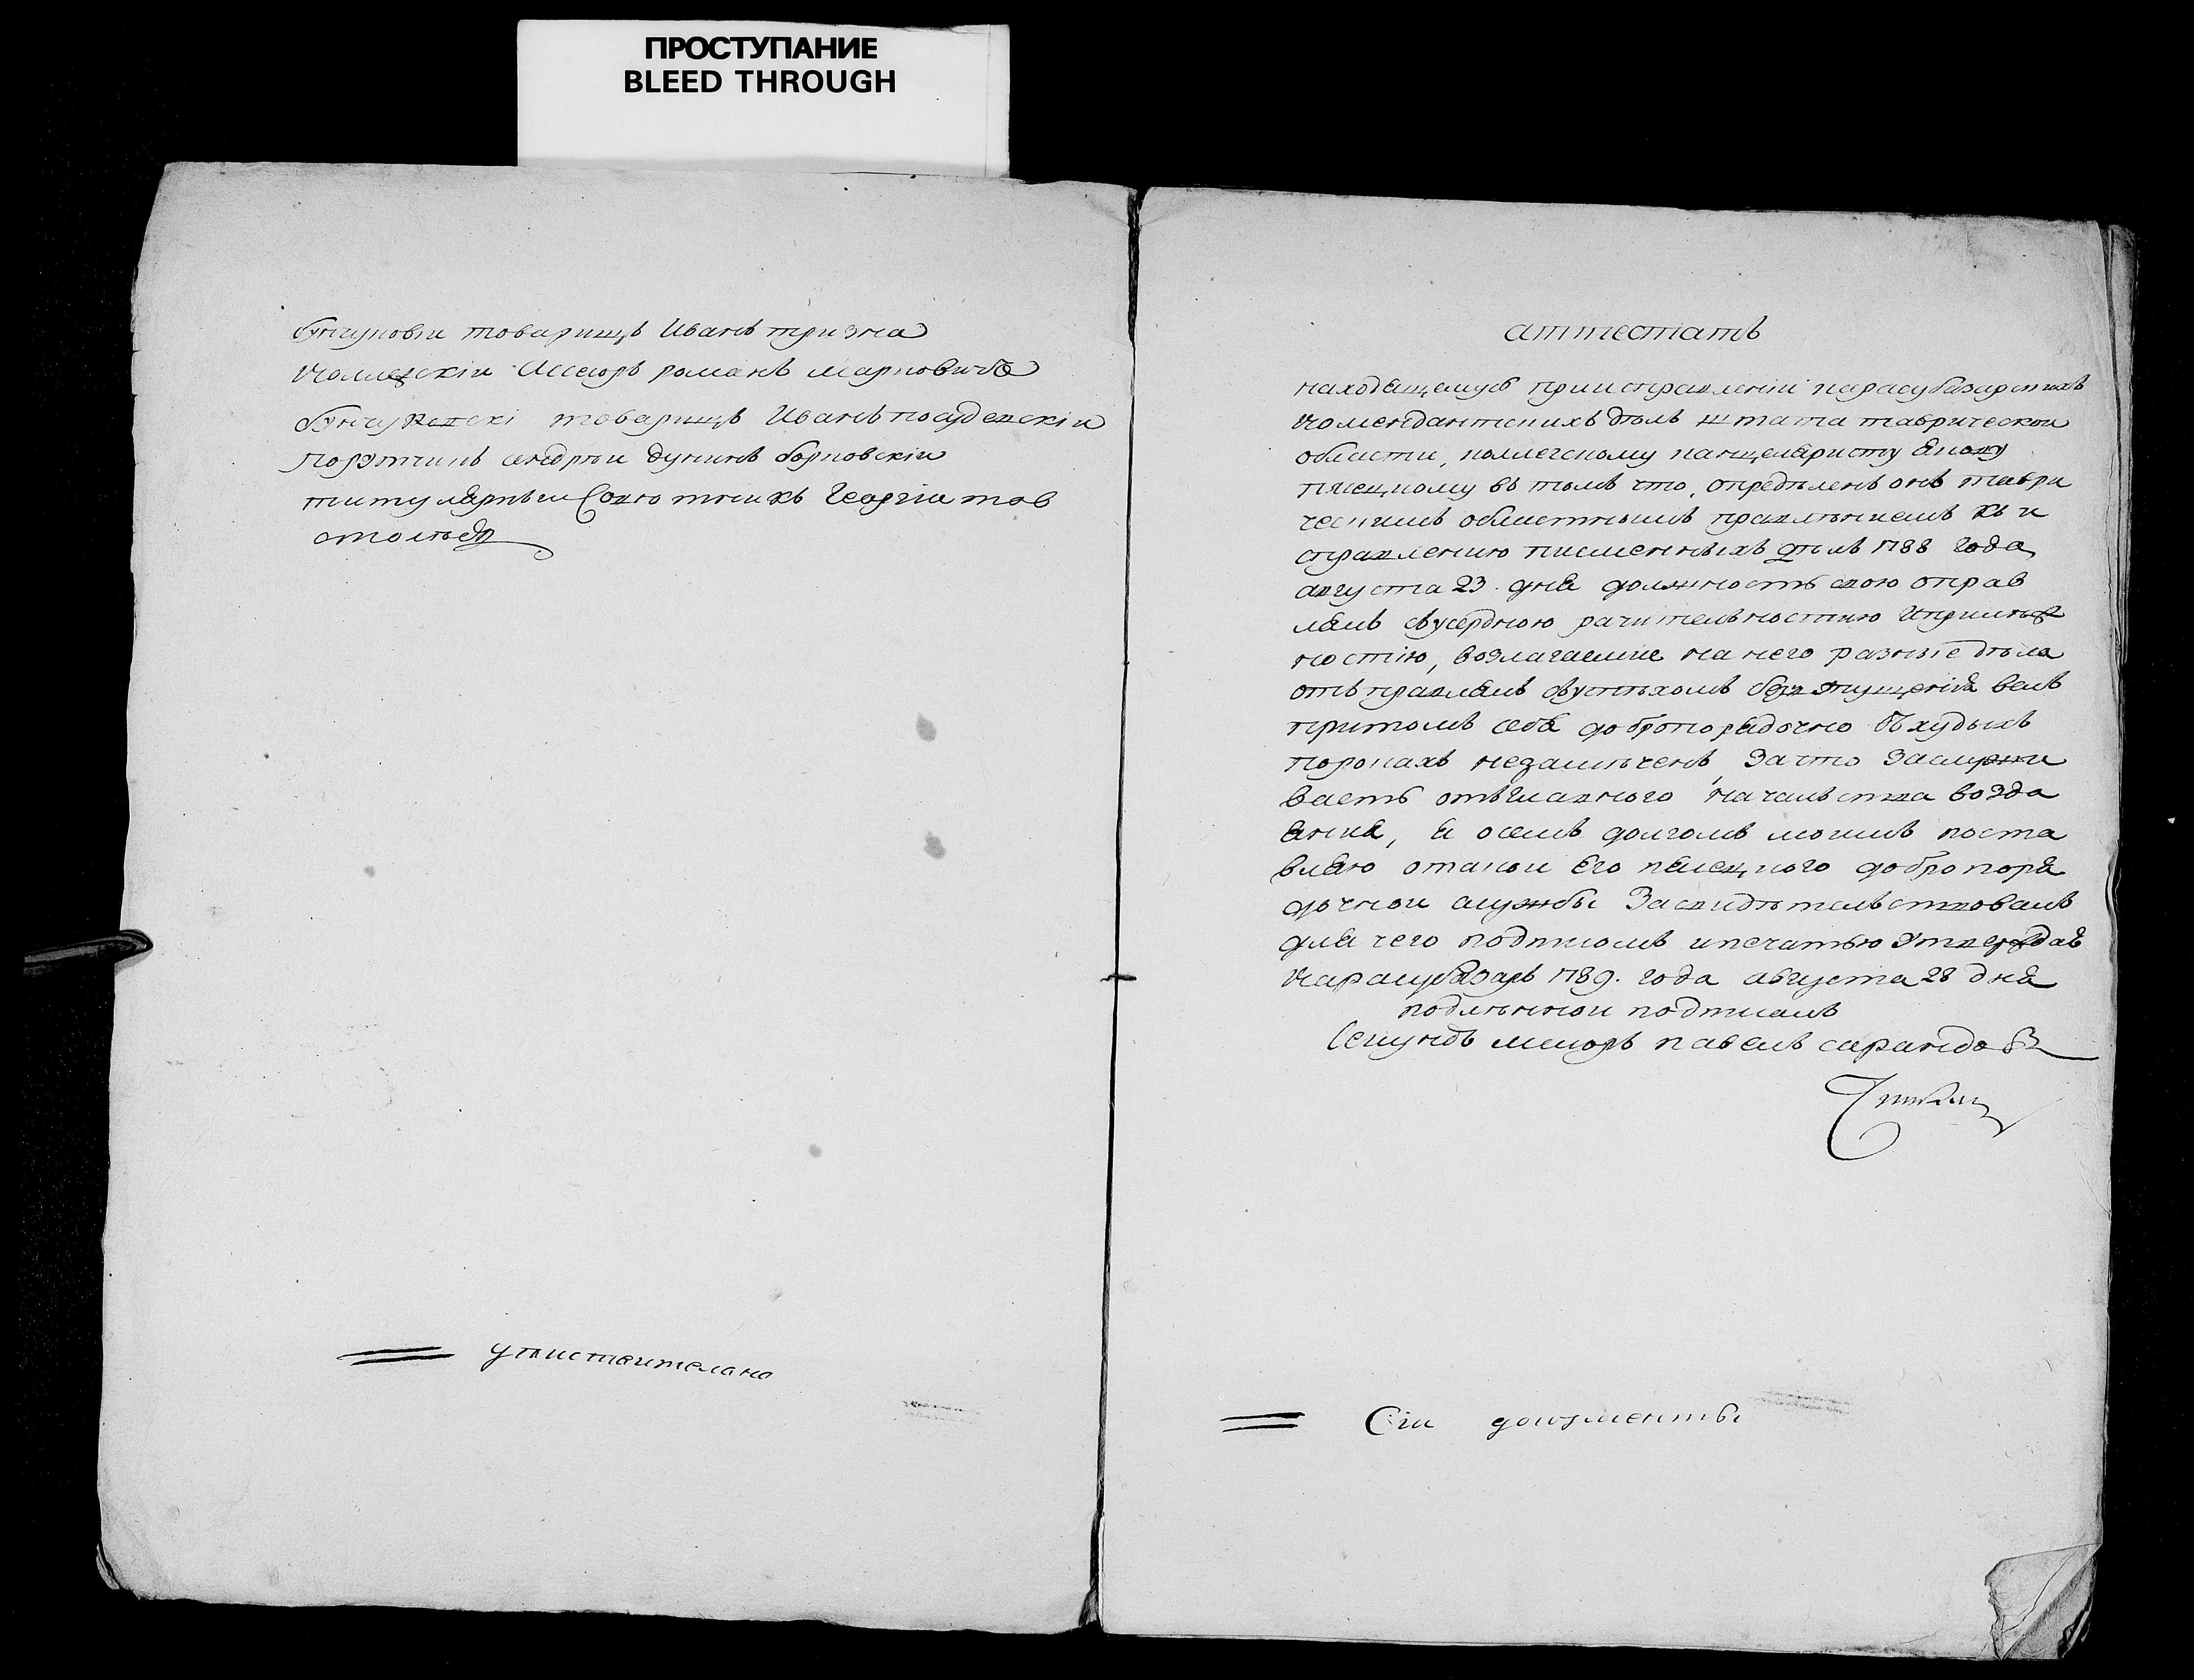 ПРОСТУПАНИЕ
BLEED THROUGH
бунчуковіи товарищъ Иванъ тризна
Коллежскіи Ассесоръ романъ марковичь
бунчуковскі товарищъ Иванъ посудевскіи
Порутчикъ андреи дунинъ борковскіи
титулярныи Совютникъ Георгіи тов
столесъ
аттестатъ
находящемусь приисправленіи карасубазарскихъ
Комендантскихъ дѣлъ штата таврическои
области, коллегскому канцеляристу якову
въ томъ что, опредѣленъ онъ таври
ческимъ областнымъ правлѣниемъ къ и
справлению писменныхъ дѣлъ 1788 года
августа 23. дня должность свою оправ
лялъ съусердною рачительностию Иприлѣж
ностію, возлагаемие на него разние дѣла
отъправлялъ съуспѣхомъ без упущенія велъ
притомъ себя добропорядочно Въхудыхъ
порокахъ незамѣченъ, За что Заслужи
ваетъ отъглавного начальства возда
яния, я осемъ долгомъ моимъ поста
вляю отакои Его добропоря
дочнои службы Засвидѣтельствовалъ
для чего подписомъ ипечатью Утвердавъ
Карасубазаръ 1789. года августа 28 дня
подлѣннои подписалъ
Секундъ маиоръ павелъ сарандов
Сіи документы